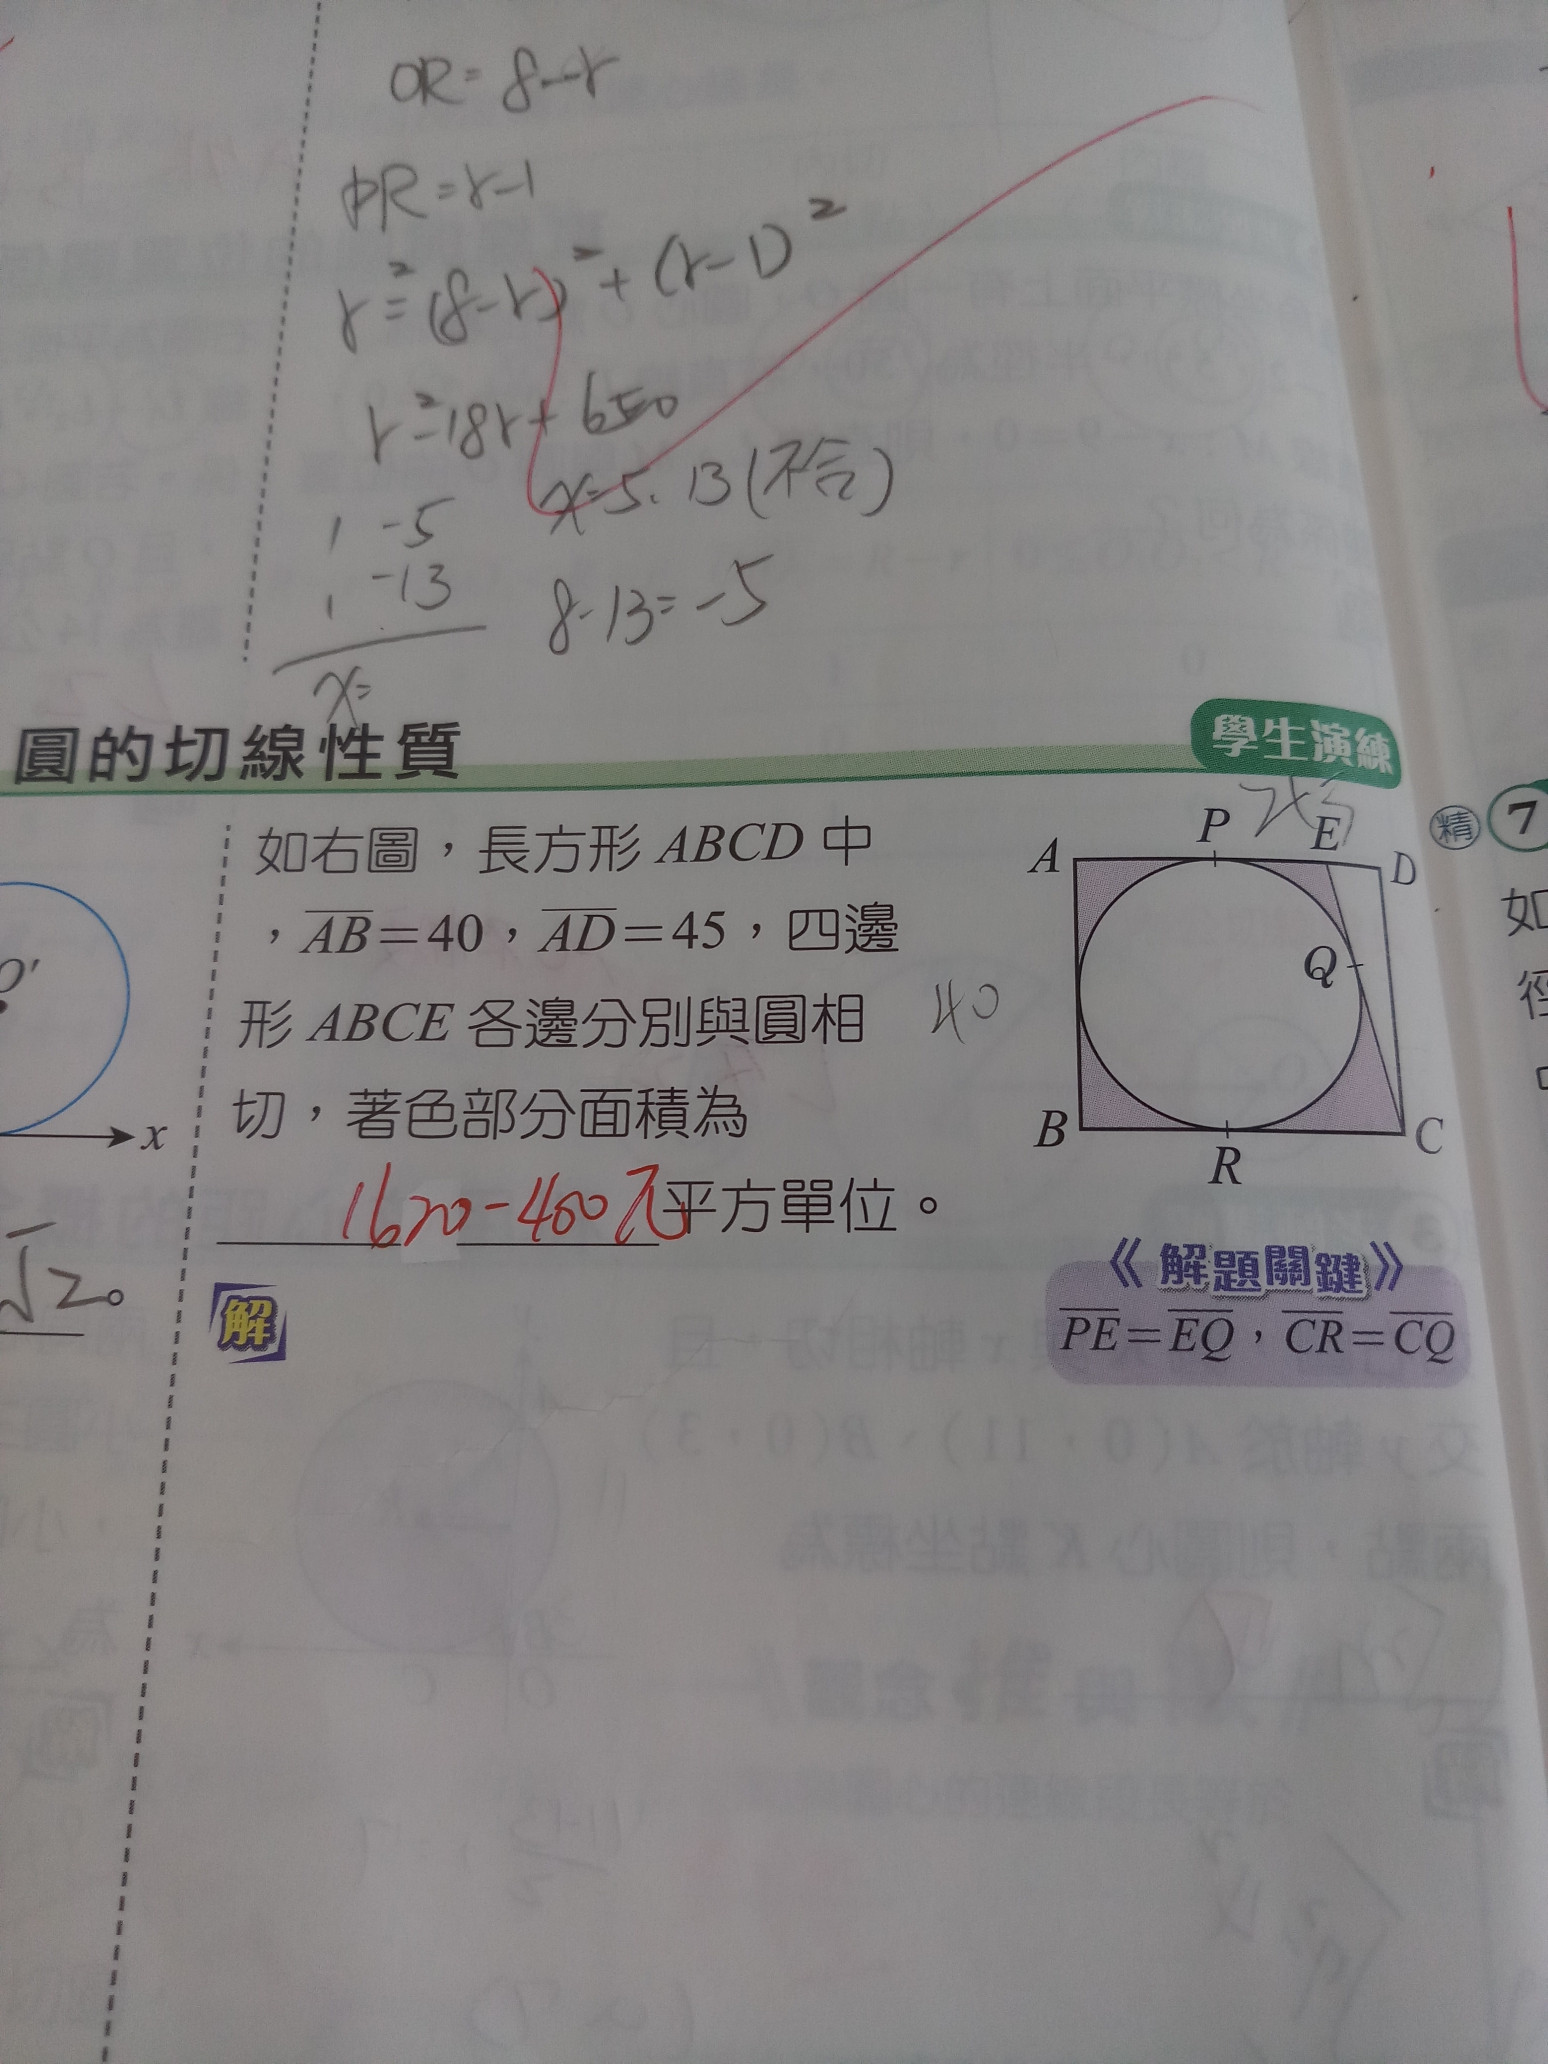 OR = 8-r
PR = r-1
r² = (8-r)² + (r-1)²
r²-18r+65=0
1 -5
x=5、13(不合)
1 -13
8-13=-5
x=
圓的切線性質
學生演練
如右圖，長方形 ABCD 中
，AB=40，AD=45，四邊
形 ABCE 各邊分別與圓相
切，著色部分面積為
1620-400π 平方單位。
40
A
P
E
D
Q
B
R
C
《解題關鍵》
PE=EQ，CR=CQ
解
O'
x
√2。
精 7
如
徑